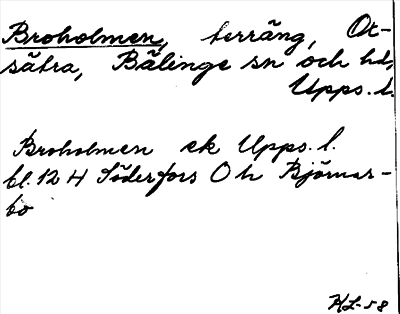 Broholmen, terräng, Ot-
sätra, Bälinge sn och hd,
Upps. l.
Broholmen ek Upps. l.
bl. 12 H Söderfors O h Björnar-
bo
HL-58